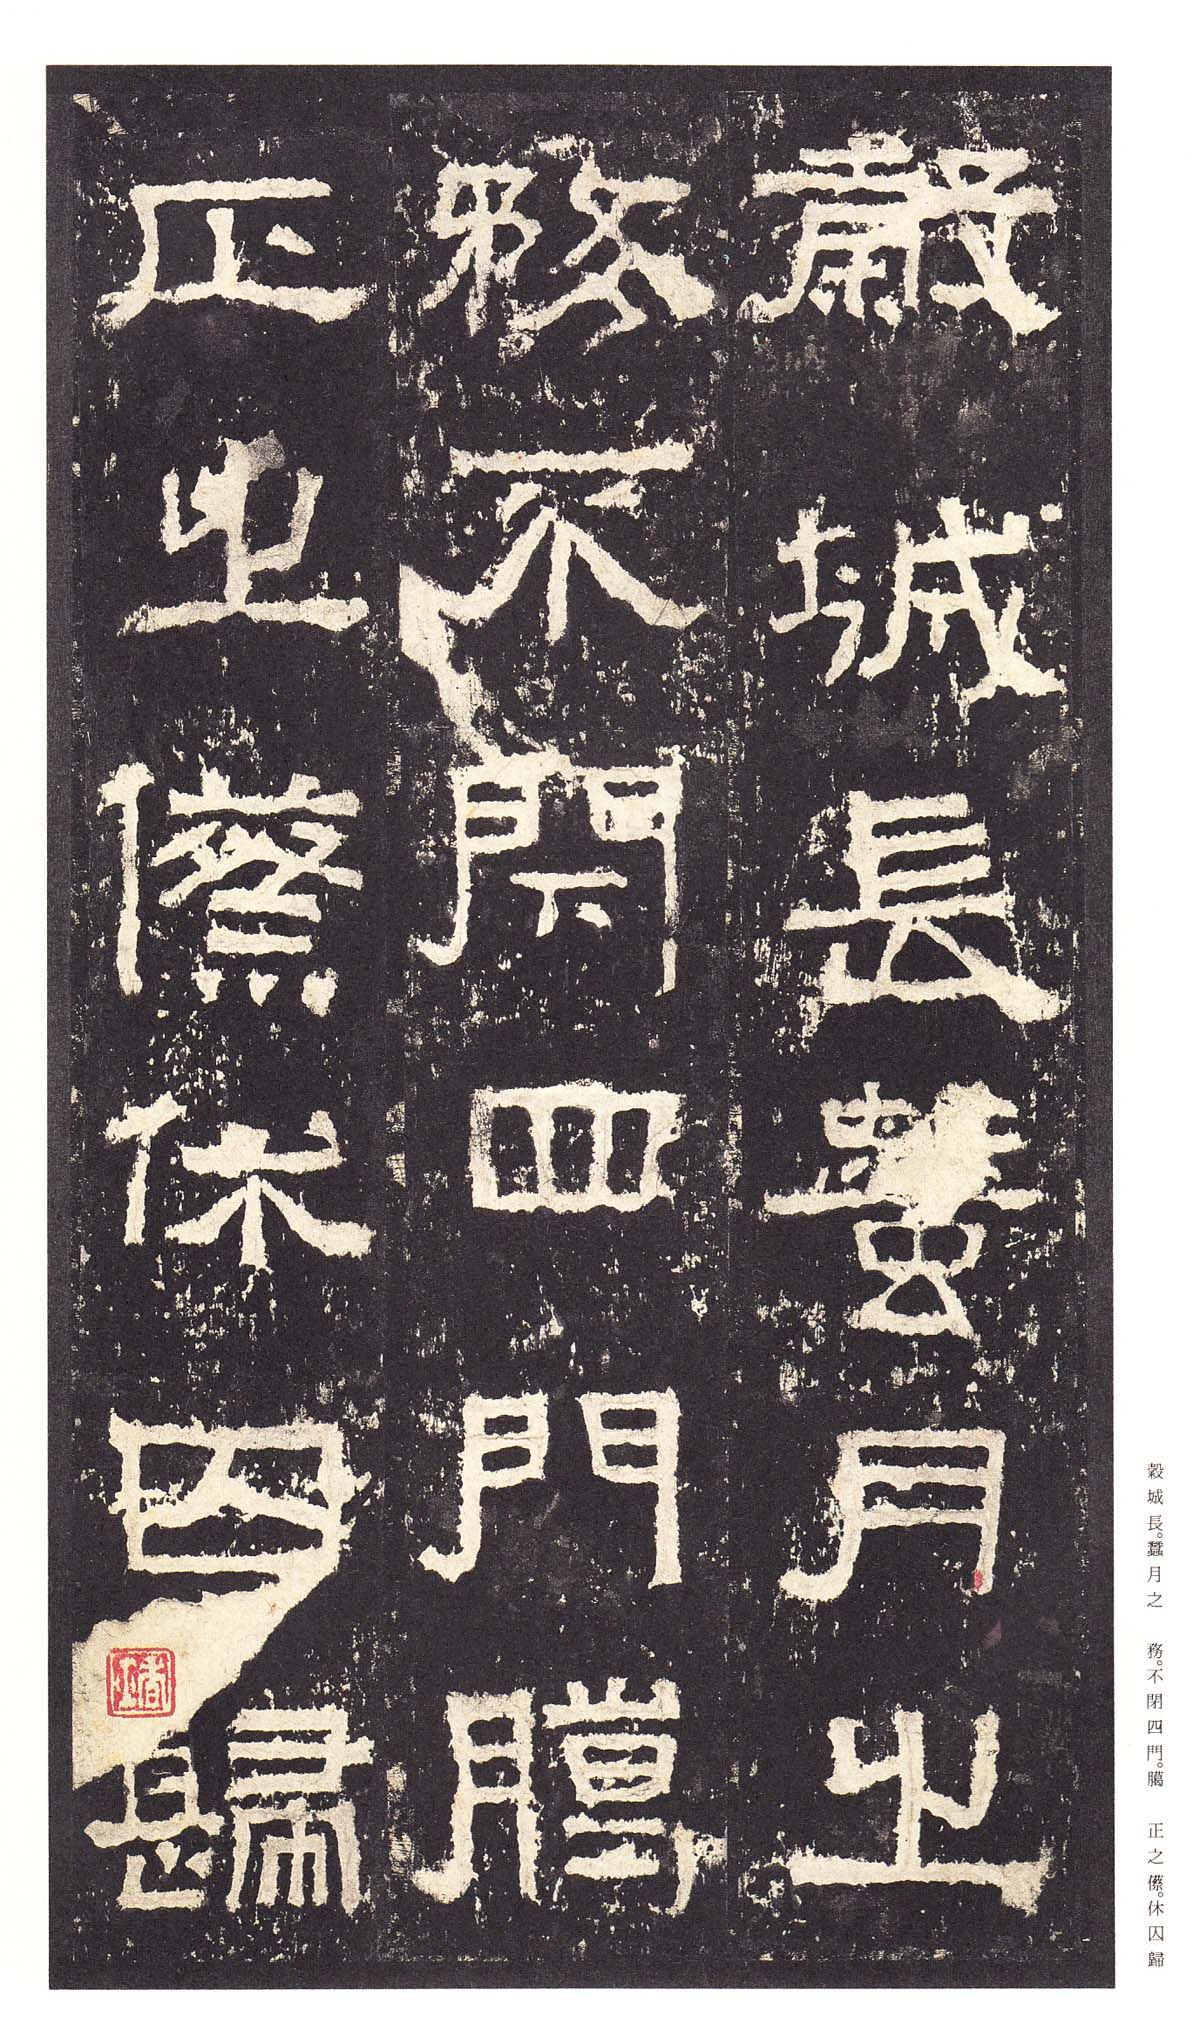 穀城長蚕月之
務不閉四門臈
正之傺休囚歸
穀城長。蠶月之　務。不閉四門。臈　正之傺。休囚歸